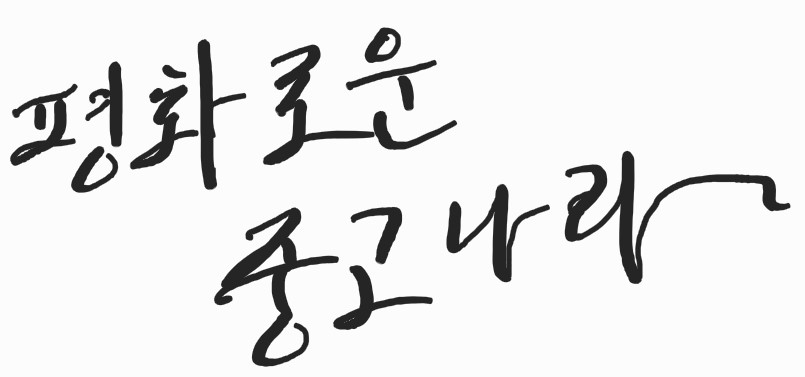 평화로운
중고나라